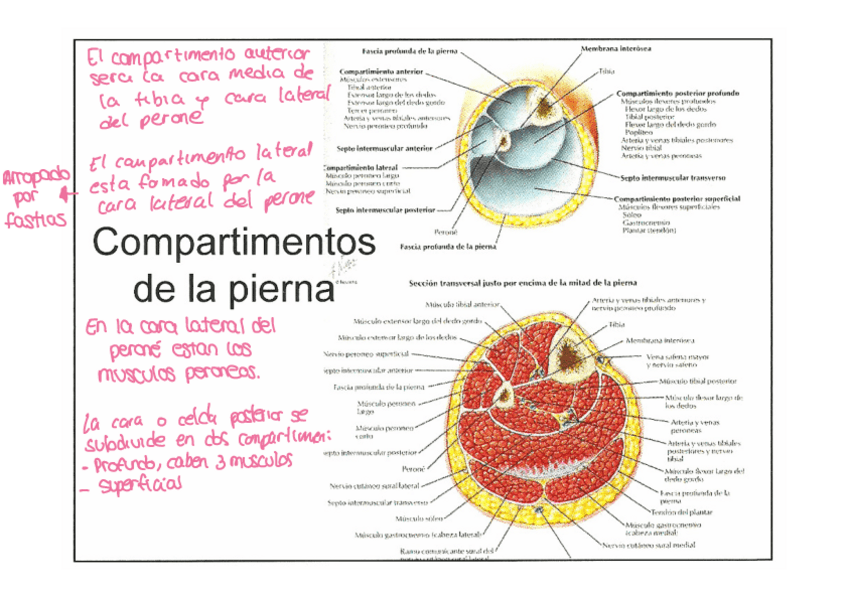 El compartimento anterior
sera la cara media de
la tibia y cara lateral
del perone
El compartimento lateral
esta formado por la
cara lateral del perone
Arropado
por
fastias
Compartimentos
de la pierna
En la cara lateral del
peroné estan los
musculos peroneos.
La cara o celda posterior se
subdivide en dos compartimen:
- Profundo, caben 3 musculos
- superficial
Fascia profunda de la pierna
Membrana interósea
Tibia
Compartimiento anterior
Músculos extensores
Tibial anterior
Extensor largo de los dedos
Extensor largo del dedo gordo
Tercer peroneo
Arteria y venas tibiales anteriores
Nervio peroneo profundo
Septo intermuscular anterior
Compartimiento lateral
Músculo peroneo largo
Músculo peroneo corto
Nervio peroneo superficial
Septo intermuscular posterior
Peroné
Fascia profunda de la pierna
Compartimiento posterior profundo
Músculos flexores profundos
Flexor largo de los dedos
Tibial posterior
Flexor largo del dedo gordo
Poplíteo
Arteria y venas tibiales posteriores
Nervio tibial
Arteria y venas peroneas
Septo intermuscular transverso
Compartimiento posterior superficial
Músculos flexores superficiales
Sóleo
Gastrocnemio
Plantar (tendón)
Sección transversal justo por encima de la mitad de la pierna
Músculo tibial anterior
Músculo extensor largo del dedo gordo
Músculo extensor largo de los dedos
Nervio peroneo superficial
septo intermuscular anterior
Fascia profunda de la pierna
Músculo peroneo
largo
Músculo peroneo
corto
septo intermuscular posterior
Peroné
Nervio cutáneo sural lateral
Septo intermuscular transverso
Músculo sóleo
Músculo gastrocnemio (cabeza lateral)
Ramo comunicante sural del
Arteria y venas tibiales anteriores y
nervio peroneo profundo
Tibia
Membrana interósea
Vena safena mayor
y nervio safeno
Músculo tibial posterior
Músculo flexor largo de
los dedos
Arteria y venas
peroneas
Arteria y venas tibiales
posteriores y nervio
tibial
Músculo flexor largo del
dedo gordo
Fascia profunda de la
pierna
Tendón del plantar
Músculo gastrocnemio
(cabeza medial)
Nervio cutáneo sural medial